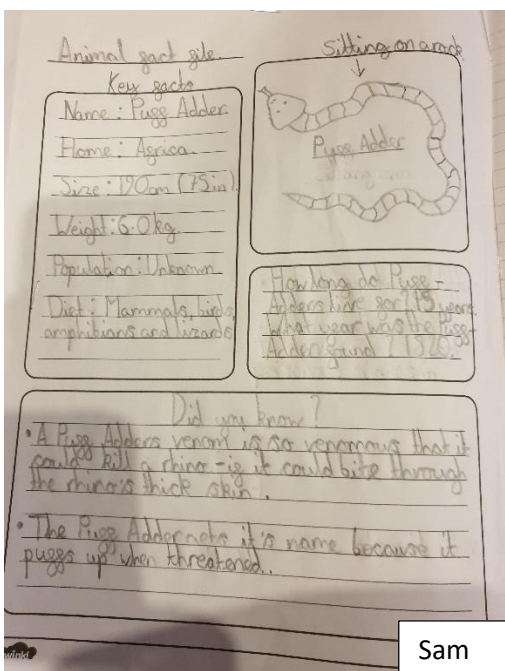 Animal fact file.
Key facts
Name: Puff Adder.
Home: Africa.
Size: 190cm (75in)
Weight: 6.0kg.
Population: Unknown
Diet: Mammals, birds,
amphibians and lizards
Sitting on a rock
Puff Adder
How long do Puff-
Adders live for? 15 years.
What year was the Puff-
Adder found? 1820.
Did you know?
• A Puff Adders venom is so venomous that it
could kill a rhino - if it could bite through
the rhino's thick skin.
• The Puff Adder it's name because it
puffs up when threatened.
Sam